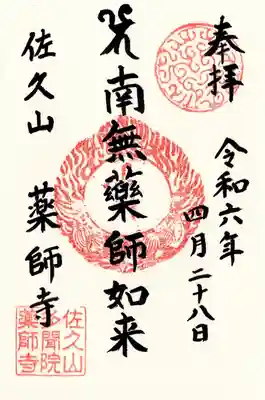 奉拝
令和六年
四月二十八日
南無薬師如来
佐久山
薬師寺
佐久山
聞院
薬師寺